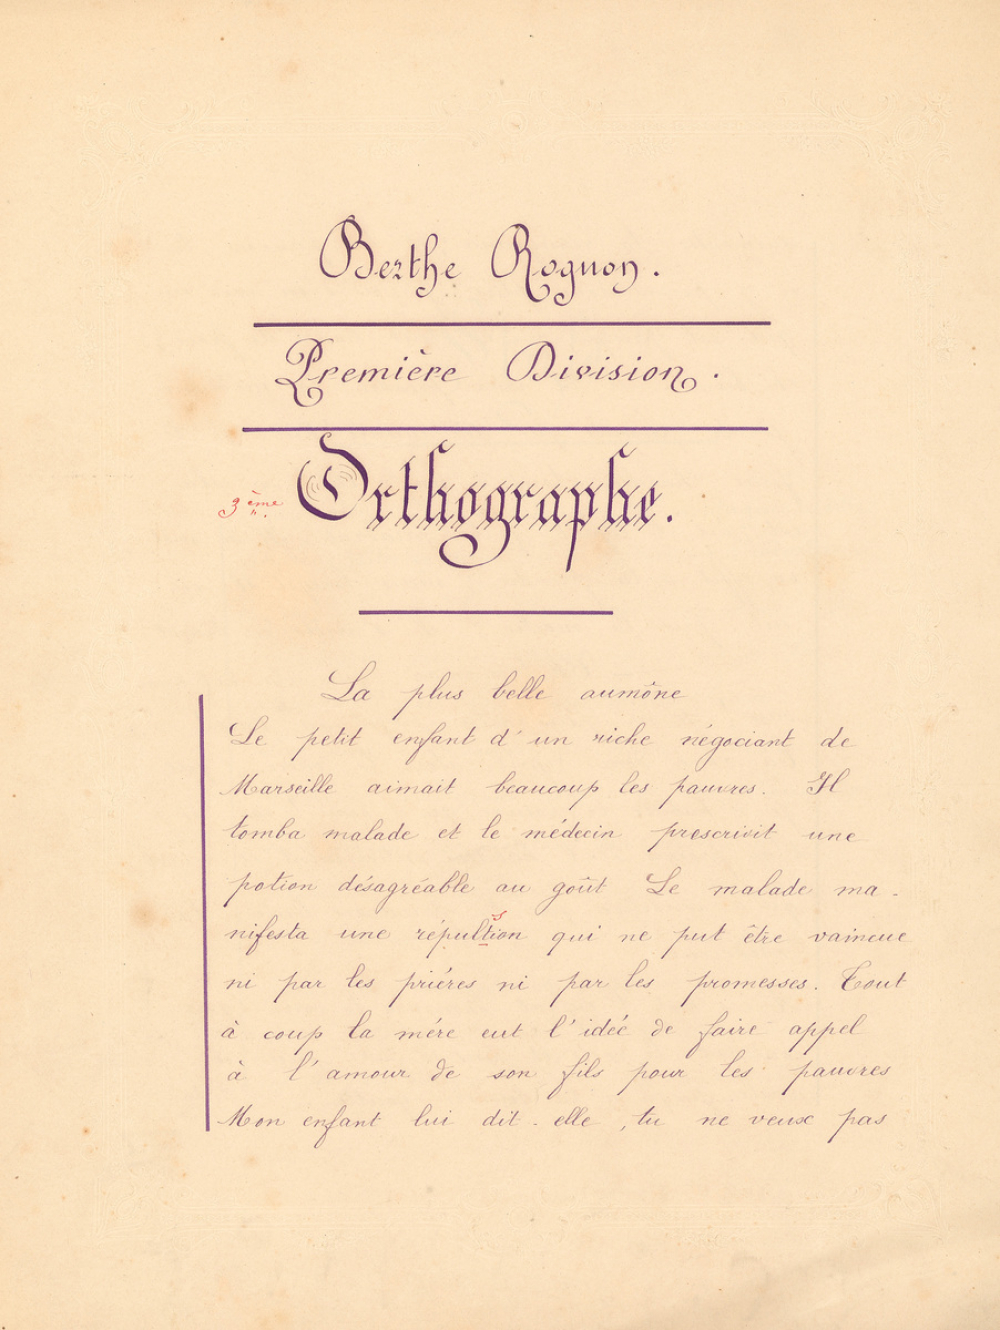 Berthe Rognon.
Première Division.
3ème Orthographe.
La plus belle aumône
Le petit enfant d'un riche négociant de
Marseille aimait beaucoup les pauvres. Il
tomba malade et le médecin prescrivit une
potion désagréable au goût Le malade ma-
s
nifesta une répultion qui ne put être vaincue
ni par les priéres ni par les promesses. Tout
à coup la mére eut l'idéé de faire appel
à l'amour de son fils pour les pauvres
Mon enfant lui dit-elle, tu ne veux pas